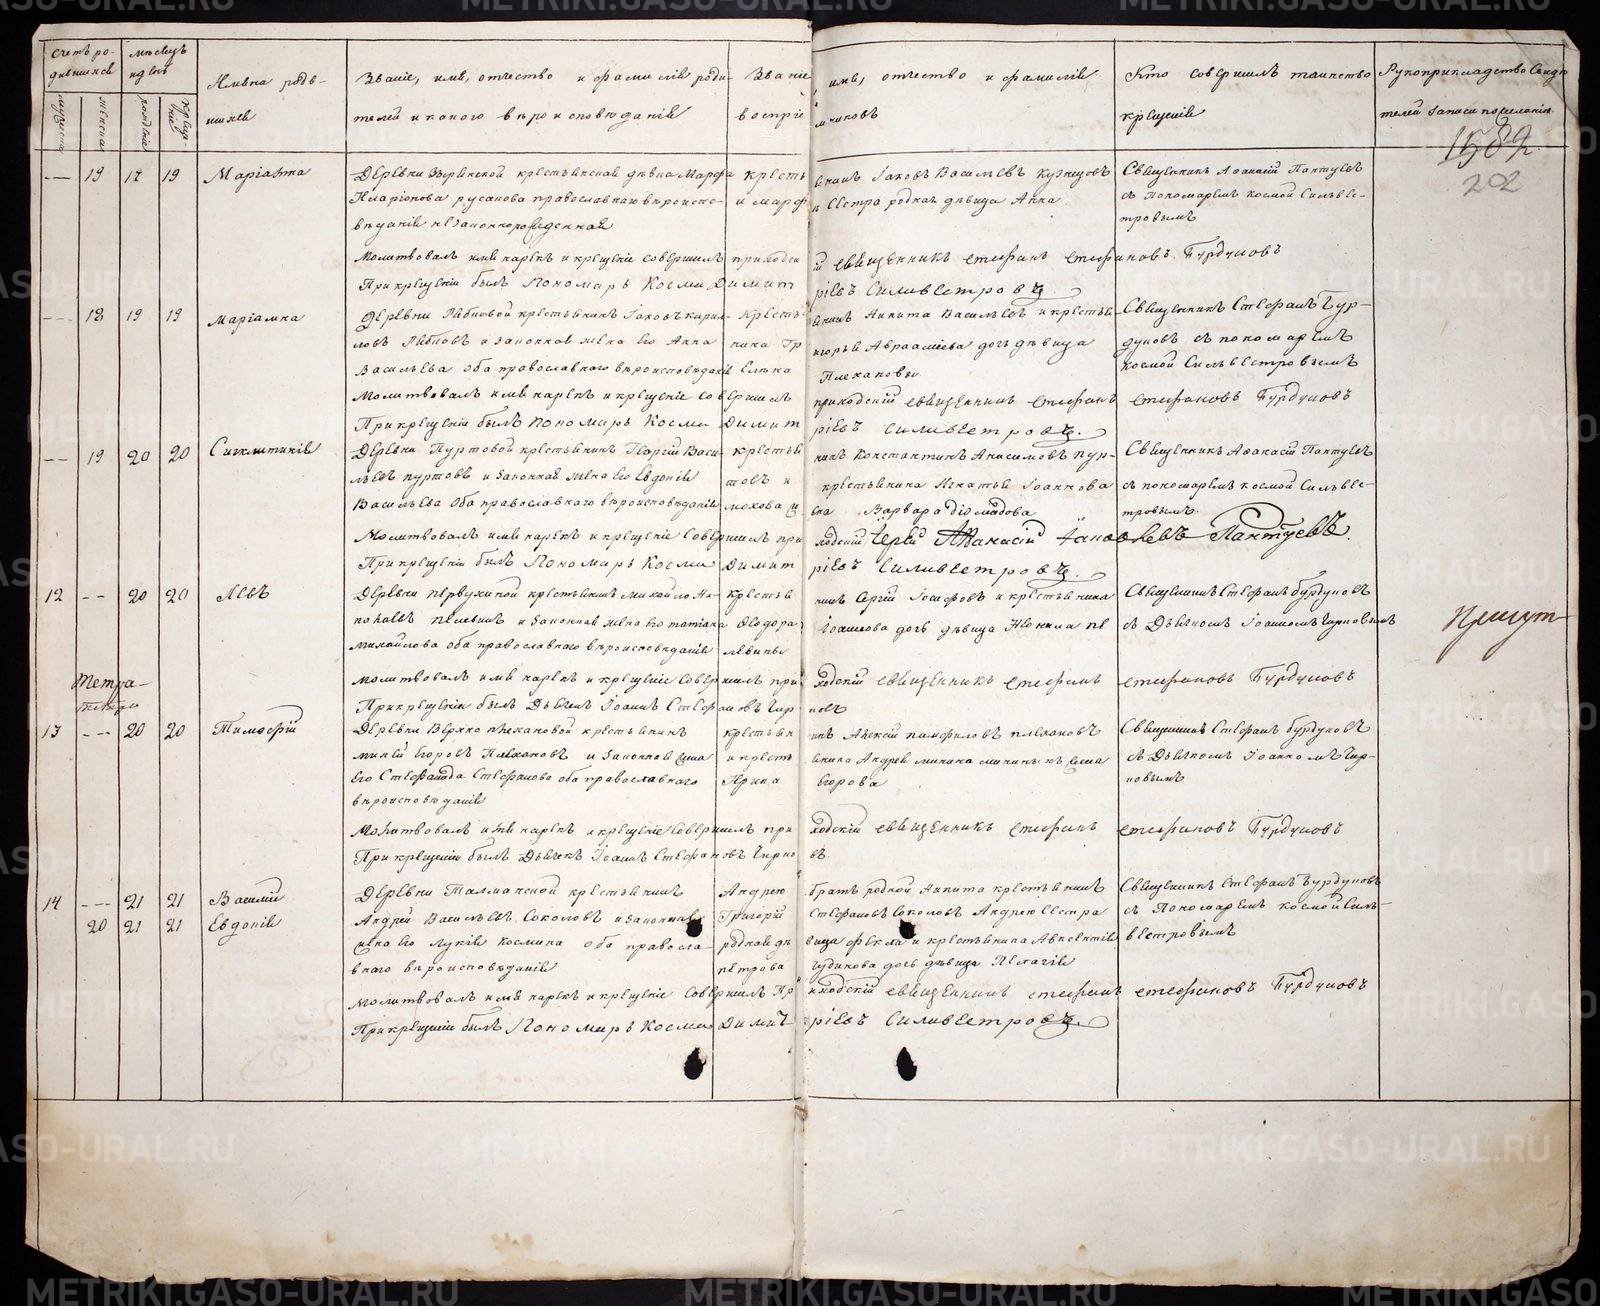 Счетъ ро-
дившихся
мѣсяцъ
и день
Имѣна родв-
шихся
Званіе, имя, отчество и фамилія роди-
телей и какого вѣроисповѣданія
Званіе имя, отчество и фамилія
воспріемниковъ
Кто совершилъ таинство
крещенія
Рукоприкладство свидѣ
телей записи по желанію
мужеска
женска
рожденія
креще-
нія
1589
202
19 17 19 Маріамна
Деревни крестьянская дѣвка Марфа
Иларіонова русанова православнаго вѣроиспо-
вѣданія незаконнорожденная
крестьянинъ Іаковъ Васильевъ Кузнецовъ
и Марфы сестра родная дѣвица Анна
Священникъ Аѳанасій Пантуевъ
съ Пономаремъ космой Сильвес-
тровымъ
Молитвовалъ имя нарекъ и крещеніе совершилъ приходскій священникъ стефанъ стефановъ Бурдуковъ
При крещеніи былъ Пономарь Косма Димитріевъ Силивестровъ
18 19 19 Маріамна
Деревни крестьянинъ Іаковъ кирил-
ловъ и законная жена его Анна
Васильева оба православнаго вѣроисповѣданія
крестьянинъ Никита Васильевъ и крестья-
нина Григорья Авраамiева дочь дѣвица
Елена Плеханова
Священникъ Стефанъ Бур-
дуковъ съ пономаремъ
космой Сильвестровымъ
Молитвовалъ имя нарекъ и крещеніе совершилъ приходскій священникъ стефанъ стефановъ Бурдуковъ
При крещеніи былъ Пономарь Косма Димитріевъ Силивестровъ
19 20 20 Сигклитикія
Деревни Пуртовой крестьянинъ Георгій Васи-
льевъ пуртовъ и законная жена его Евдокія
Васильева оба православнаго вѣроисповѣданія
крестьянинъ Константинъ Анисимовъ пур-
товъ и крестьянина Игнатья Іоаннова
Варвара Діомидова
Священникъ Аѳанасій Пантуевъ
съ пономаремъ космой Сильвес-
тровымъ
Молитвовалъ имя нарекъ и крещеніе совершилъ приходскій іерей Аѳанасій Пантуевъ.
При крещеніи былъ Пономарь Косма Димитріевъ Силивестровъ
12 20 20 Левъ
Деревни первухиной крестьянинъ михайло Ни-
и законная жена его татіана
михайлова оба православнаго вѣроисповѣданія
крестьянинъ Сергій Іосифовъ и крестьянина
Ѳеодора дочь дѣвица Неонила пе
левины
Священникъ Стефанъ бурдуковъ
съ Дьячкомъ Іоанномъ Чирковымъ
молитвовалъ имя нарекъ и крещеніе совершилъ приходскій священникъ стефанъ стефановъ Бурдуковъ
При крещеніи былъ Дьячекъ Іоаннъ Стефановъ Чирковъ
13 20 20 Тимоѳей
Деревни Верхно плехановой крестьянинъ
миней Егоровъ Плехановъ и законная жена
его Стефанида Стефанова оба православнаго
вѣроисповѣданія
крестьянинъ Алексей памфиловъ плехановъ
и крестьянина Андрея минина жена
Ирина Егорова
Священникъ Стефанъ бурдуковъ
съ Дьячкомъ Іоанномъ Чир-
ковымъ
Молитвовалъ имя нарекъ и крещеніе совершилъ приходскій священникъ стефанъ стефановъ Бурдуковъ
При крещеніи былъ Дьячекъ Іоаннъ Стефановъ Чирковъ.
14 21 21 Василій
20 21 21 Евдокія
Деревни Талманской крестьянинъ
Андрей Васильевъ Соколовъ и законная
жена его Лукія космина оба правосла-
внаго вѣроисповѣданія
Андрею братъ родной Никита крестьянинъ
Григорій Стефановъ Соколовъ Андрею сестра
родная дѣвица фекла и крестьянина Авксентія
петрова Чудинова дочь дѣвица Пелагія
Священникъ Стефанъ Бурдуковъ
съ Пономаремъ космой Силь-
вестровымъ
Молитвовалъ имя нарекъ и крещеніе совершилъ Приходскій священникъ стефанъ стефановъ Бурдуковъ
При крещеніи былъ Пономарь Косма Димитріевъ Силивестровъ.
METRIKI.GASO-URAL.RU